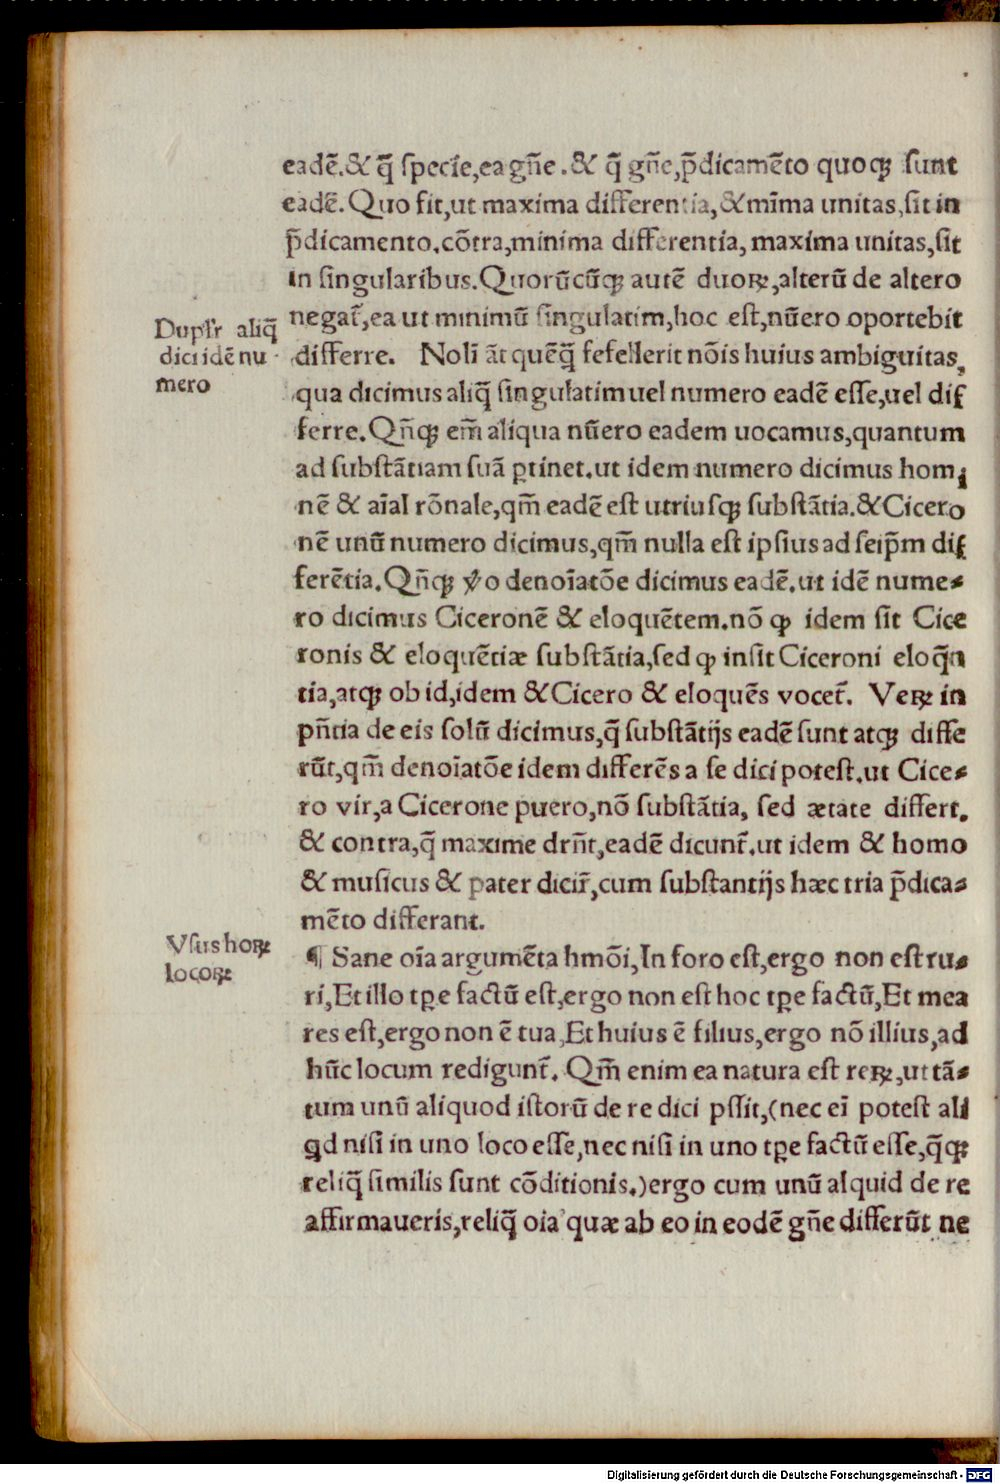 eadē.& q̄ specie,ea gn̄e.& q̄ gn̄e,p̄dicamēto quoqꝫ sunt
eadē.Quo fit,ut maxima differentia,& mīma unitas,sit in
p̄dicamento.cōtra,minima differentia, maxima unitas,sit
in singularibus.Quorūcūqꝫ autē duoꝝ,alterū de altero
negat̄,ea ut minimū singulatim,hoc est,nūero oportebit
Duplr̄ aliq̄
dici idē nu
mero
differre. Nolī āt quēq̄ fefellerit nōis huius ambiguitas,
qua dicimus aliq̄ singulatim uel numero eadē esse,uel dif
ferre.Qn̄qꝫ em̄ aliqua nūero eadem uocamus,quantum
ad substātiam suā ꝑtinet.ut idem numero dicimus homi
nē & aīal rōnale,qm̄ eadē est utriusqꝫ substātia.& Cicero
nē unū numero dicimus,qm̄ nulla est ipsius ad seip̄m dif
ferētia.Qn̄qꝫ ꝟo denoīatōe dicimus eadē.ut idē nume-
ro dicimus Ciceronē & eloquētem.nō ꝙ idem sit Cice
ronis & eloquētiæ substātia,sed ꝙ insit Ciceroni eloq̄n
tia,atqꝫ ob id,idem & Cicero & eloquēs vocet̄. Veꝝ in
pn̄tia de eis solū dicimus,q̄ substātijs eadē sunt atqꝫ diffe
rūt,qm̄ denoīatōe idem differēs a se dici potest.ut Cice-
ro vir,a Cicerone puero,nō substātia, sed ætate differt.
& contra,q̄ maxime drn̄t,eadē dicunt̄.ut idem & homo
& musicus & pater dicit̄,cum substantijs hæc tria p̄dica-
mēto differant.
Vsus hoꝝ
locoꝝ
¶ Sane oīa argumēta hmōi,In foro est,ergo non est ru-
ri,Et illo tꝑe factū est,ergo non est hoc tꝑe factū,Et mea
res est,ergo non ē tua,Et huius ē filius,ergo nō illius,ad
hūc locum redigunt̄. Qm̄ enim ea natura est reꝝ,ut tā-
tum unū aliquod istorū de re dici pssit,(nec eī potest ali
qd nisi in uno loco esse,nec nisi in uno tꝑe factū esse,q̄qꝫ
reliq̄ similis sunt cōditionis.)ergo cum unū alquid de re
affirmaueris,reliq̄ oia quæ ab eo in eodē gn̄e differūt ne
Digitalisierung gefördert durch die Deutsche Forschungsgemeinschaft - DFG